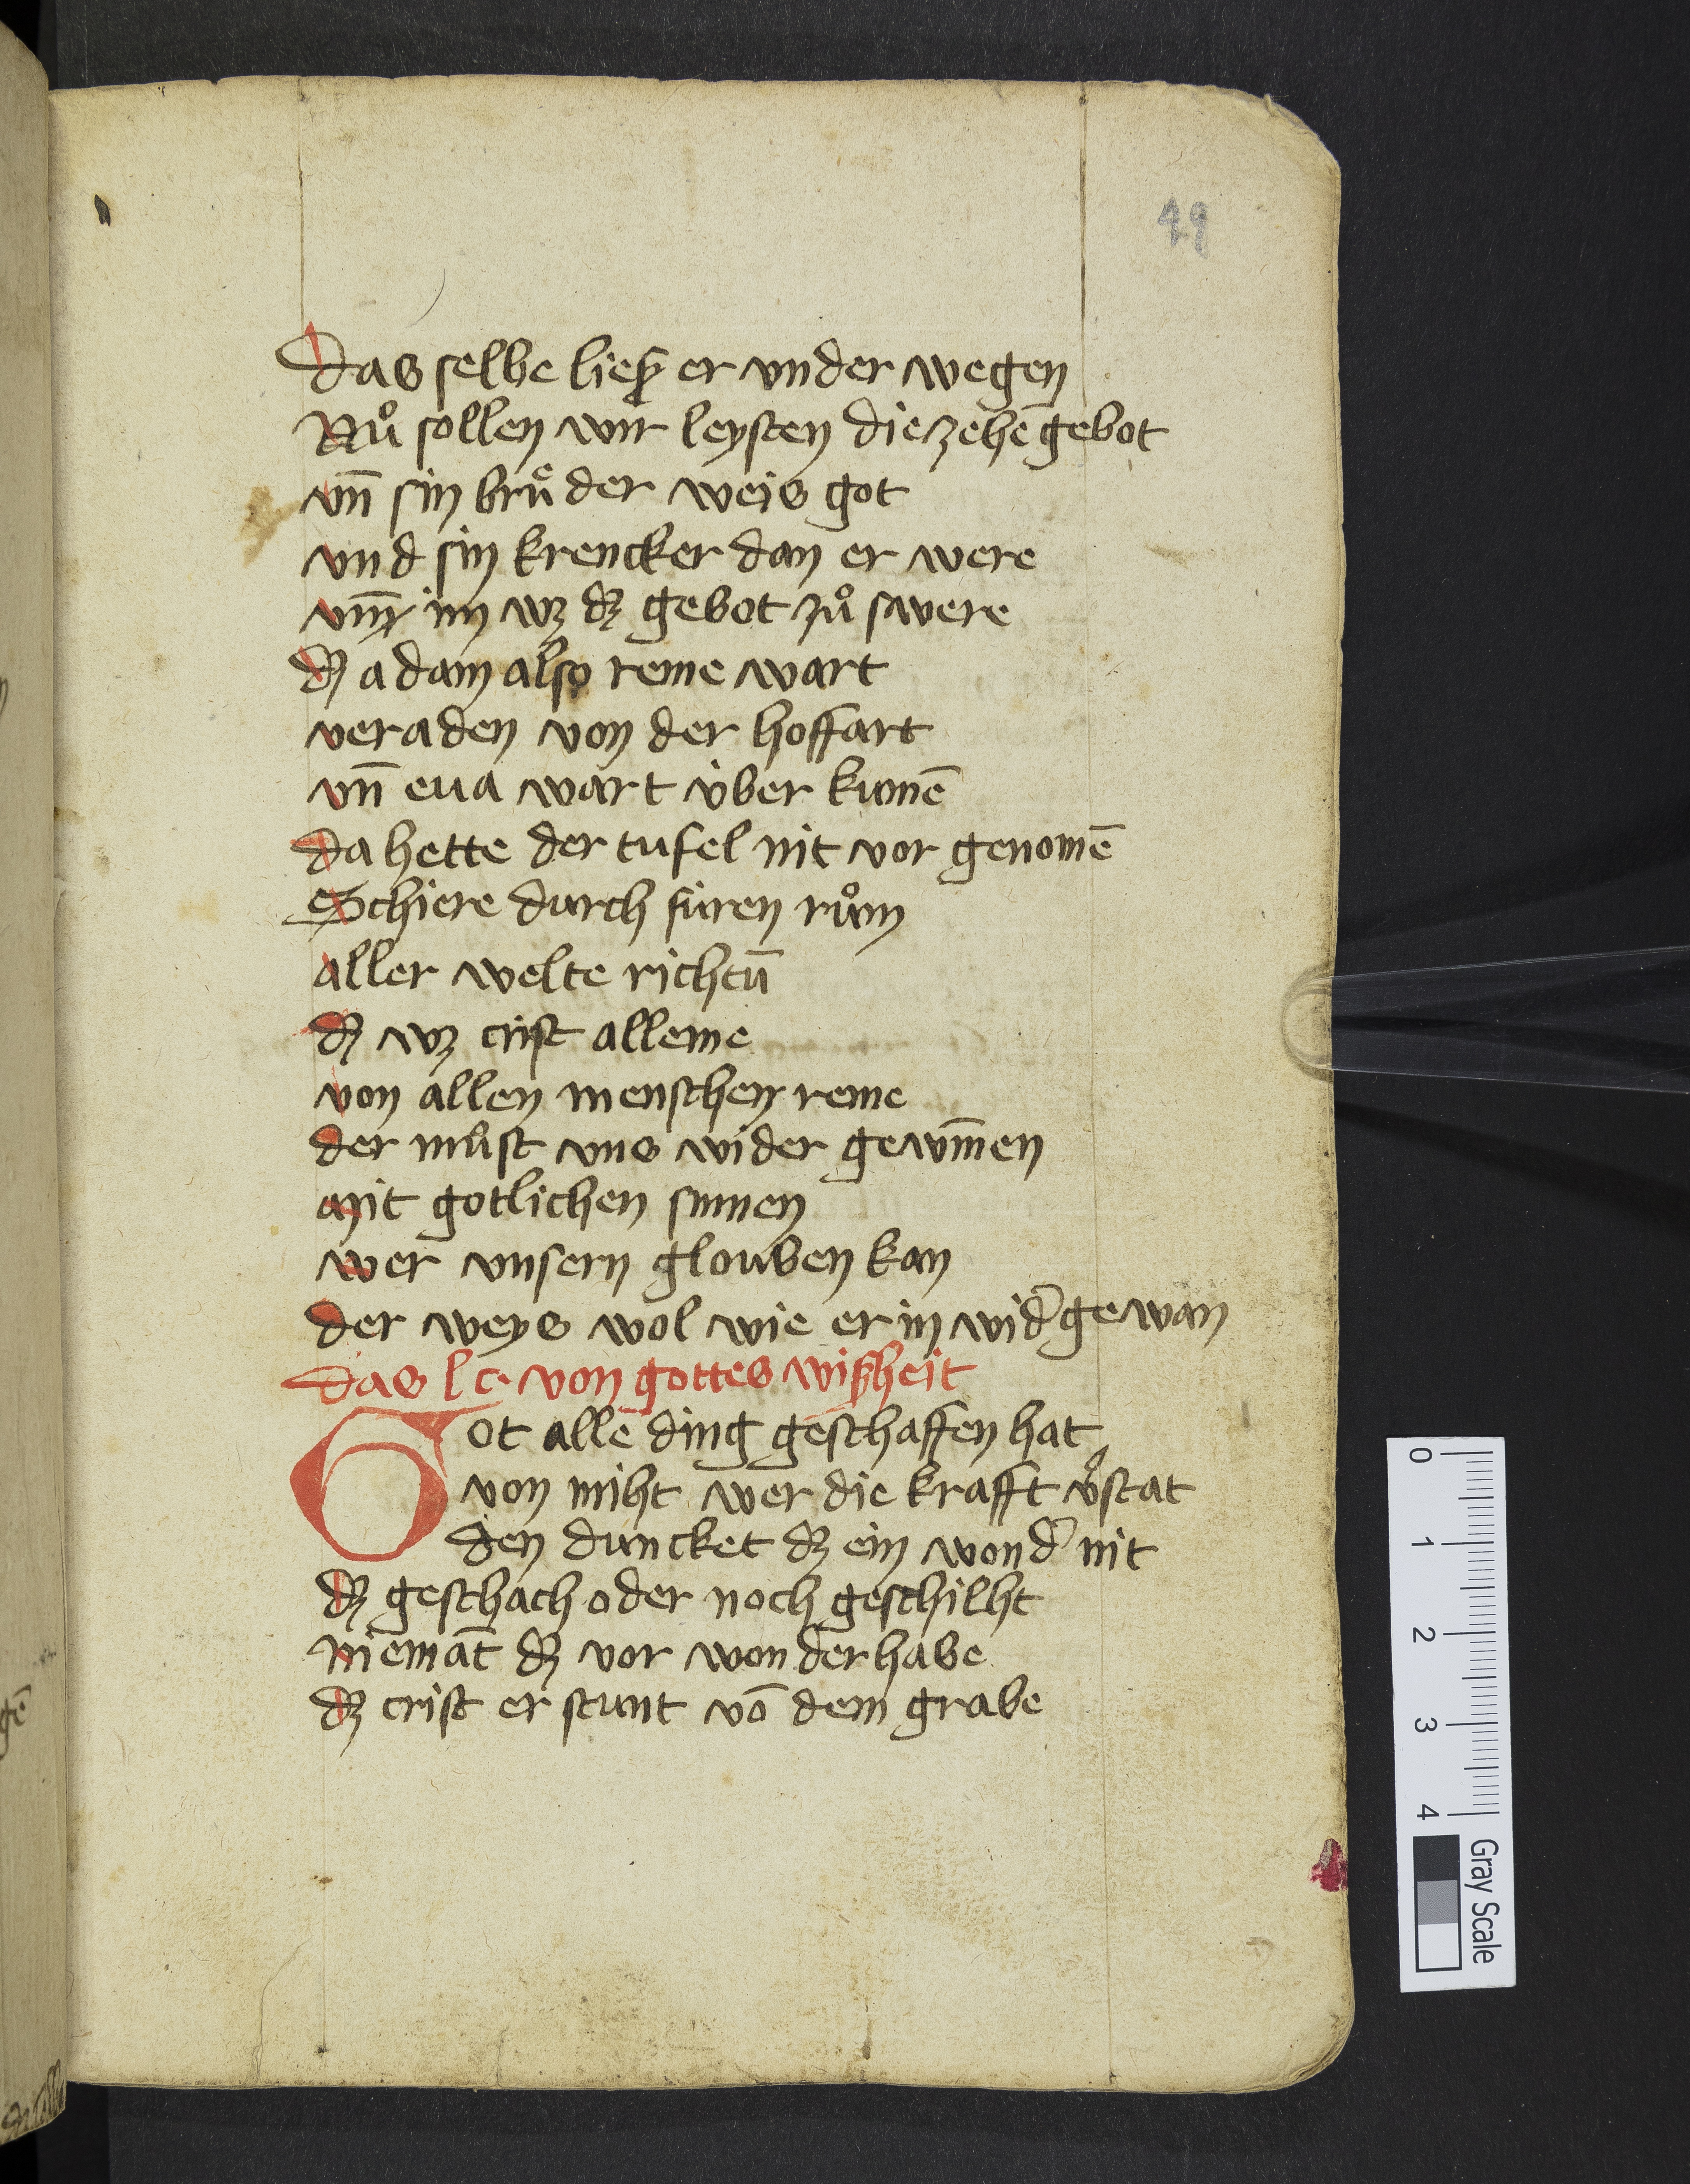 49
Das selbe ließ er vnder wegen
Nuͦ sollen wir leysten die zehē gebot
vn̄ sin bruͤder weis got
vnd sin krencker dan er were
vnd im wz dz gebot zuͦ swere
dz adam also reine wart
veraden von der hoffart
vn̄ eua wart v̇ber kumē
Da hette der tufel nit vor genomē
Schiere durch siren ruͦm
aller welte richtū
dz wz crist alleine
von allen menschen reine
der muͦst vns wider gewīnen
Mit gotlichen sinnen
wer vnsern glouben kan
der weys wol wie er in wid̕ gewan
Das lc von gottes wißheit
Got alle ding geschaffen hat
von niht wer die krafft v̕stat
den duncket dz ein wond̕ nit
dz geschach oder noch geschiht
niemāt dz vor wonder habe
dz crist er stunt vō dem grabe
0
1
2
3
4
Gray Scale